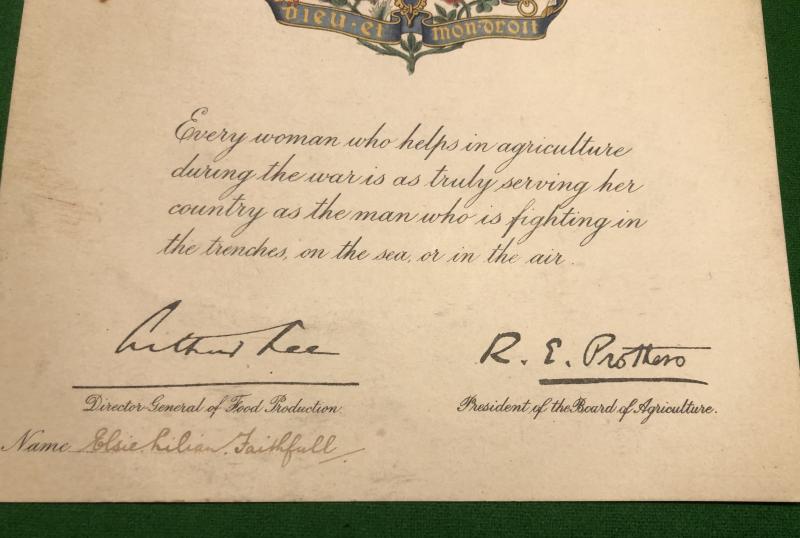 Dieu · et mon · droit
Every woman who helps in agriculture
during the war is as truly serving her
country as the man who is fighting in
the trenches, on the sea, or in the air.
Arthur Lee
R. E. Prothero
Director-General of Food Production.
President of the Board of Agriculture.
Name Elsie Lilian Faithfull